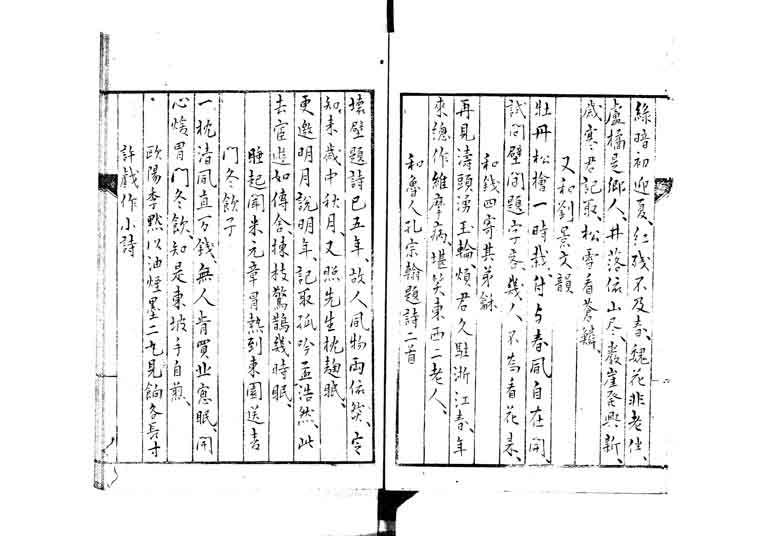 綠暗初迎夏、紅殘不及春、魏花非老伴、
盧橘是鄉人、井落依山尽、巖崖發興新、
歲寒君記取、松雪看蒼鱗、
又和劉景文韻
牡丹松檜一時栽、付与春風自在開、
試問壁間題字客、幾人不為看花來、
和錢四寄其弟龢
再見濤頭湧玉輪、煩君久駐浙江春、年
來總作維摩病、堪笑東西二老人、
和魯人孔宗翰題詩二首
壞壁題詩已五年、故人風物兩依然、定
知來歲中秋月、又照先生枕麴眠、
更邀明月說明年、記取孤吟孟浩然、此
去宦遊如傳舍、揀枝驚鵲幾時眠、
睡起聞米元章冒熱到東園送麦
門冬飲子
一枕清風直万錢、無人肯買北窓眠、開
心煖胃門冬飲、知是東坡手自煎、
歐陽季默以油煙墨二丸見餉各長寸
許戲作小詩